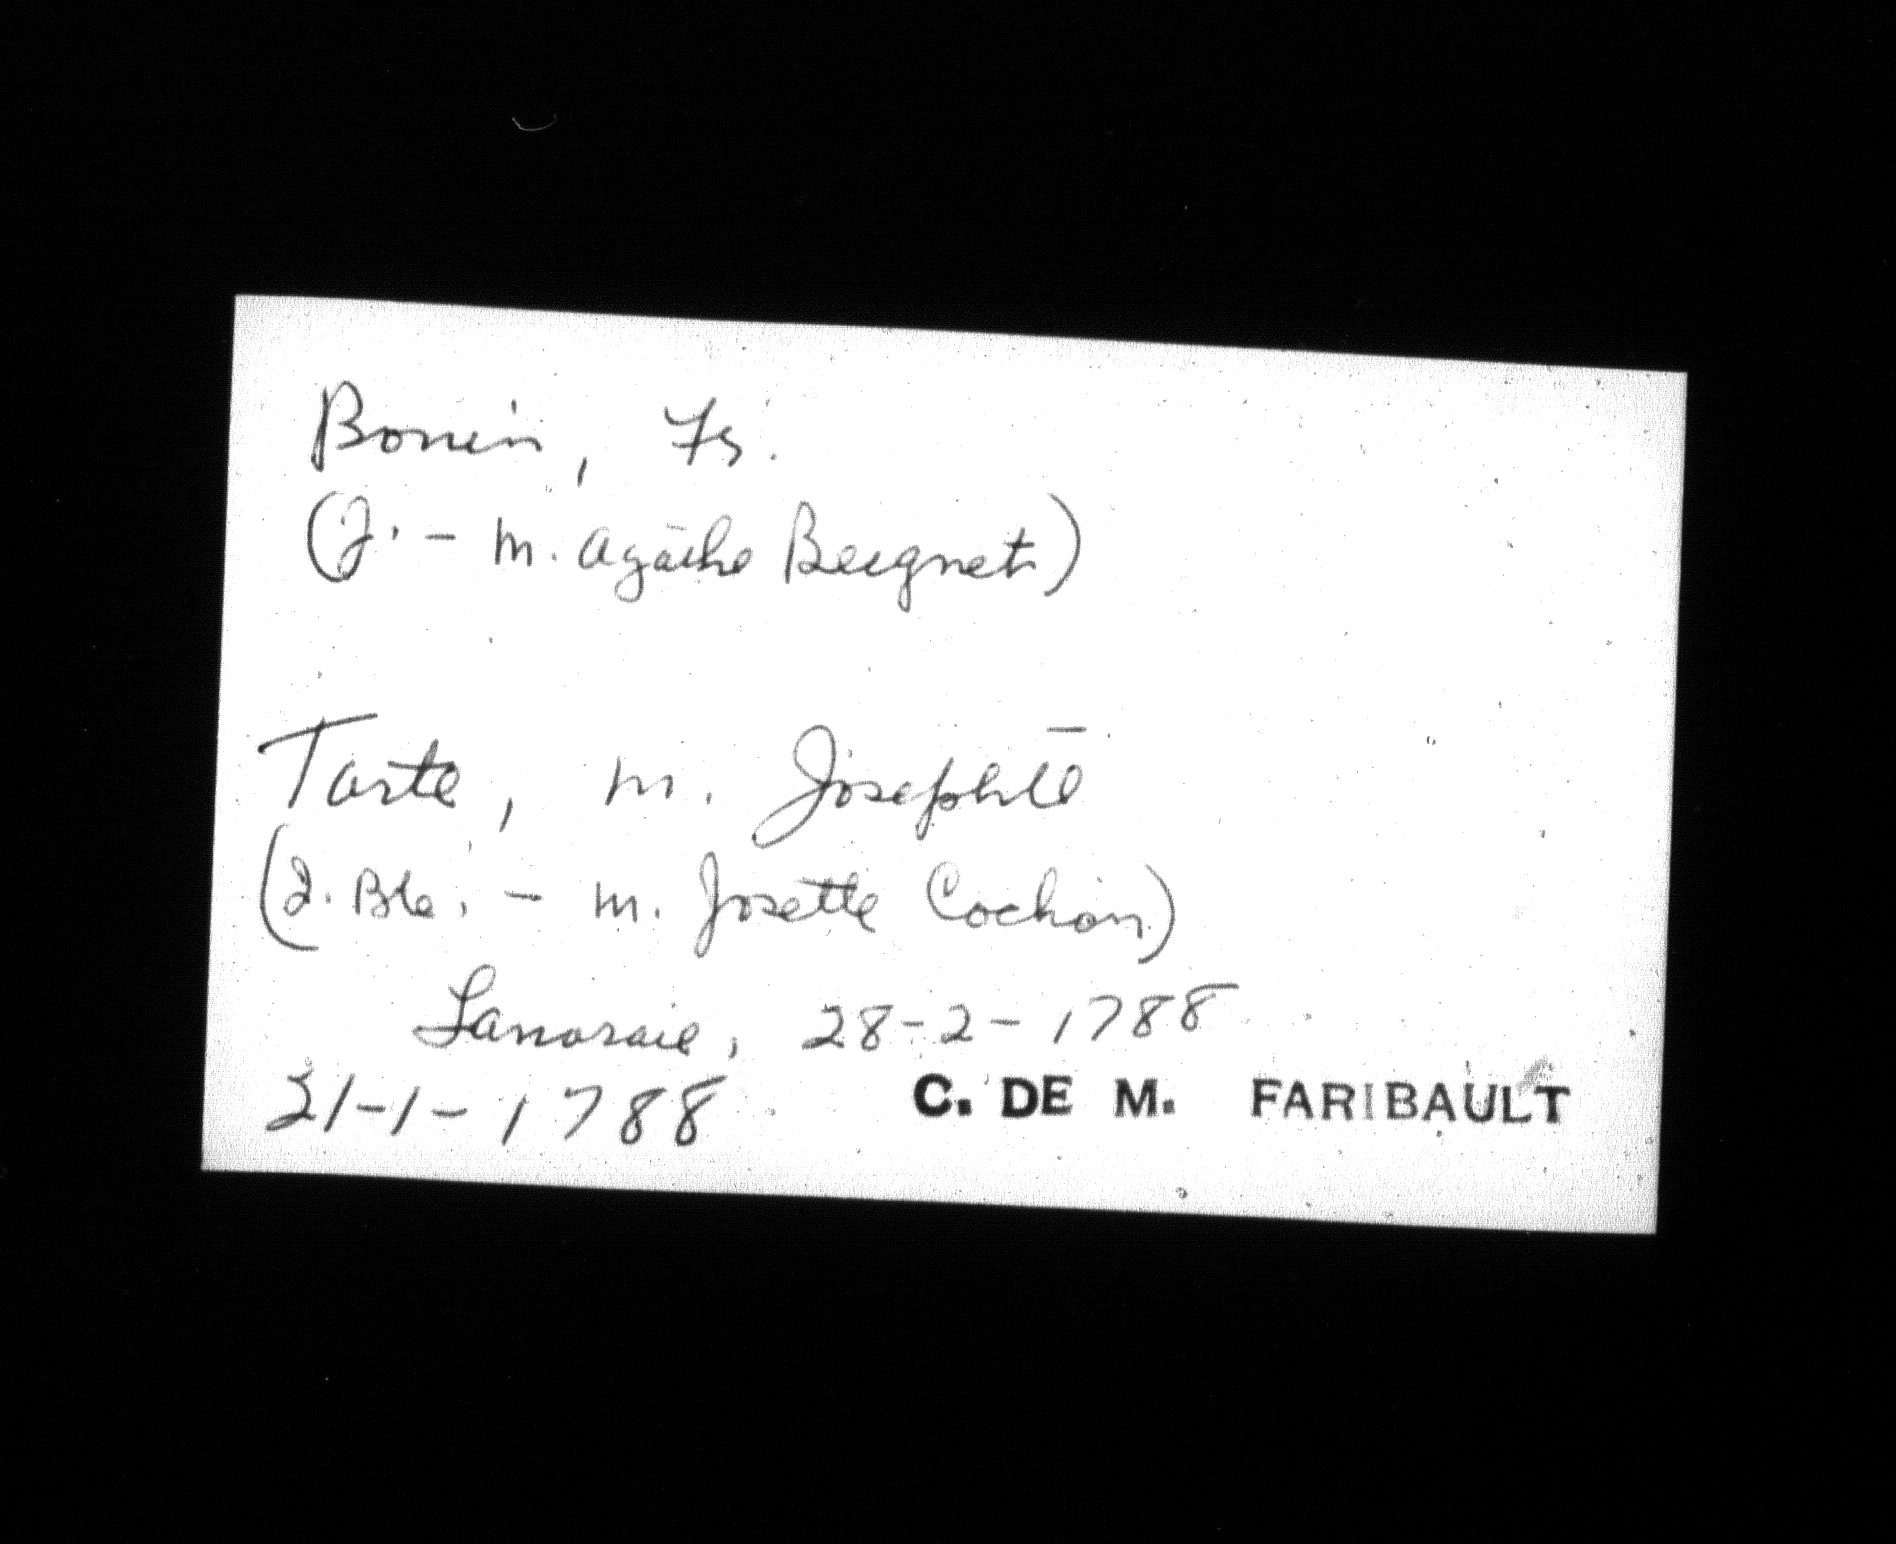 Bonin, Fs.
(J. - M. Agathe Beignet)
Tarte, M. Josephte
(J. Bte. - M. Josette Cochon)
Lanoraie, 28-2-1788
21-1-1788 C. DE M. FARIBAULT